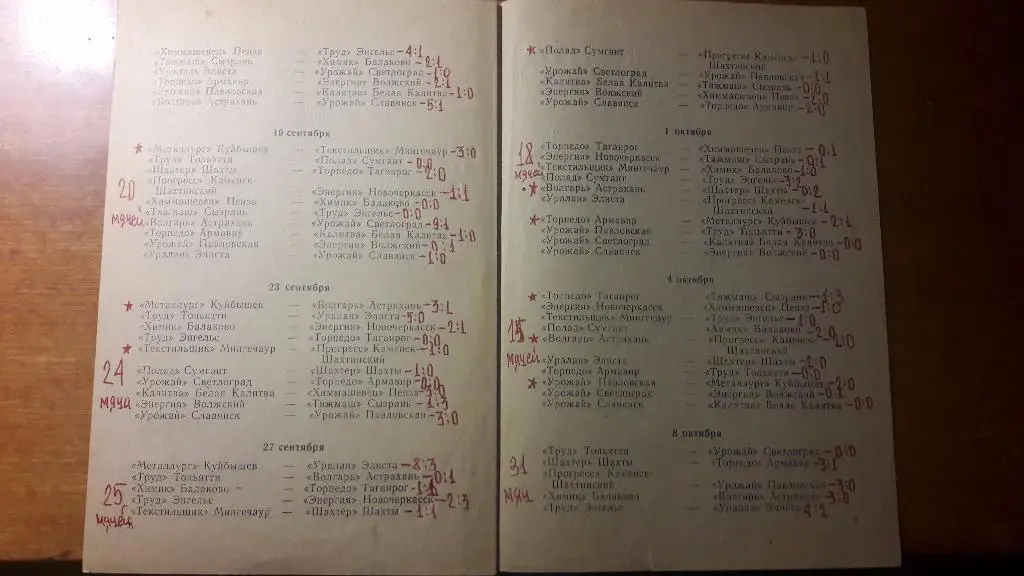 «Химмашевец» Пенза — «Труд» Энгельс – 4:1
«Тяжмаш» Сызрань — «Химик» Балаково – 2:1
«Уралан» Элиста — «Урожай» Светлоград – 1:0
«Торпедо» Армавир — «Энергия» Волжский – 2:1
«Урожай» Павловская — «Калитва» Белая Калитва – 1:0
«Волгарь» Астрахань — «Урожай» Славянск – 5:1
19 сентября
* «Металлург» Куйбышев — «Текстильщик» Мингечаур – 3:0
«Труд» Тольятти — «Полад» Сумгаит – 0:0
«Шахтер» Шахты — «Торпедо» Таганрог – 2:0
«Прогресс» Каменск-
Шахтинский — «Энергия» Новочеркасск – 1:1
20 мячей
«Химмашевец» Пенза — «Химик» Балаково – 0:0
«Тяжмаш» Сызрань — «Труд» Энгельс – 0:0
«Волгарь» Астрахань — «Урожай» Светлоград – 9:1
«Торпедо» Армавир — «Калитва» Белая Калитва – 1:0
«Урожай» Павловская — «Энергия» Волжский – 0:1
«Уралан» Элиста — «Урожай» Славянск – 1:0
23 сентября
* «Металлург» Куйбышев — «Волгарь» Астрахань – 3:1
«Труд» Тольятти — «Уралан» Элиста – 5:0
«Химик» Балаково — «Энергия» Новочеркасск – 2:1
«Труд» Энгельс — «Торпедо» Таганрог – 0:0
* «Текстильщик» Мингечаур — «Прогресс» Каменск- – 1:0
Шахтинский
24 мяча
«Полад» Сумгаит — «Шахтер» Шахты – 1:0
«Урожай» Светлоград — «Торпедо» Армавир – 0:0
«Калитва» Белая Калитва — «Химмашевец» Пенза
«Энергия» Волжский — «Тяжмаш» Сызрань – 1:3
«Урожай» Славянск — «Урожай» Павловская – 3:0
27 сентября
«Металлург» Куйбышев — «Уралан» Элиста – 8:3
«Труд» Тольятти — «Волгарь» Астрахань – 0:1
25 мячей
«Химик» Балаково — «Торпедо» Таганрог
«Труд» Энгельс — «Энергия» Новочеркасск – 2:3
«Текстильщик» Мингечаур — «Шахтер» Шахты – 1:1
* «Полад» Сумгаит — «Прогресс» Каменск- – 1:0
Шахтинский
«Урожай» Светлоград — «Урожай» Павловская – 1:1
«Калитва» Белая Калитва — «Тяжмаш» Сызрань – 0:0
«Энергия» Волжский — «Химмашевец» Пенза – 2:0
«Урожай» Славянск — «Торпедо» Армавир – 2:0
1 октября
18 мячей
«Торпедо» Таганрог — «Химмашевец» Пенза – 0:1
«Энергия» Новочеркасск — «Тяжмаш» Сызрань – 0:1
«Текстильщик» Мингечаур — «Химик» Балаково – 1:0
«Полад» Сумгаит — «Труд» Энгельс
* «Волгарь» Астрахань — «Шахтер» Шахты – 0:2
«Уралан» Элиста — «Прогресс» Каменск-
Шахтинский – 1:1
* «Торпедо» Армавир — «Металлург» Куйбышев – 2:1
«Урожай» Павловская — «Труд» Тольятти – 3:0
«Урожай» Светлоград — «Калитва» Белая Калитва – 0:0
«Урожай» Славянск — «Энергия» Волжский – 0:0
4 октября
* «Торпедо» Таганрог — «Тяжмаш» Сызрань – 1:3
«Энергия» Новочеркасск — «Химмашевец» Пенза – 1:0
«Текстильщик» Мингечаур — «Труд» Энгельс – 1:0
15 мячей
«Полад» Сумгаит — «Химик» Балаково – 2:0
* «Волгарь» Астрахань — «Прогресс» Каменск- – 2:0
Шахтинский
«Уралан» Элиста — «Шахтер» Шахты – 2:0
«Торпедо» Армавир — «Труд» Тольятти – 0:0
* «Урожай» Павловская — «Металлург» Куйбышев – 1:0
«Урожай» Светлоград — «Энергия» Волжский – 0:1
«Урожай» Славянск — «Калитва» Белая Калитва – 0:0
8 октября
«Труд» Тольятти — «Урожай» Светлоград – 0:0
31 мяч
«Шахтер» Шахты — «Торпедо» Армавир – 3:1
«Прогресс» Каменск-
Шахтинский — «Урожай» Павловская – 3:0
«Химик» Балаково — «Волгарь» Астрахань – 3:0
«Труд» Энгельс — «Уралан» Элиста – 4:2